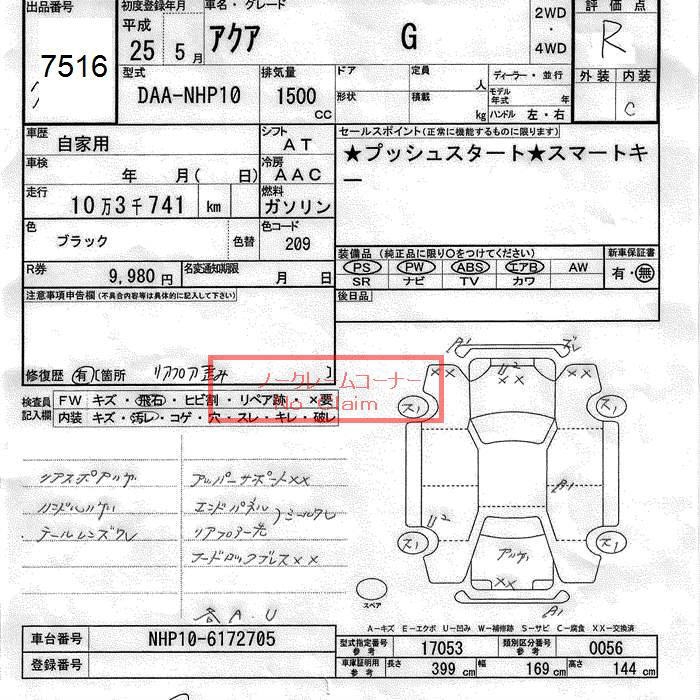 出品番号
初度登録年月
車名・グレード
評価点
7516
平成
25 5 月
アクア G
2WD
・
4WD
R
型式
DAA-NHP10
排気量
1500
cc
ドア
定員
人
形状
積載
kg
ディーラー・並行
モデル年式 年
ハンドル 左・右
外装 内装
C
車歴
自家用
シフト
AT
セールスポイント(正常に機能するものに限ります)
★プッシュスタート★スマートキー
車検
年 月( 日)
冷房
AAC
走行
10万3千741 km
燃料
ガソリン
色
ブラック
色替
色コード
209
R券
9,980 円
名変通知期限
月 日
装備品 (純正品に限り○をつけてください)
新車保証書
PS PW ABS エアB AW
有・無
SR ナビ TV カワ
後日品
注意事項申告欄(不具合内容等は具体的に記入して下さい)
修復歴 有 〔箇所 リアフロア歪み 〕
ノークレームコーナー
No Claim
検査員記入欄
FW キズ・飛石・ヒビ割・リペア跡・×要
内装 キズ・汚レ・コゲ・穴・スレ・キレ・破レ
リアスポアツカ
ハンドルハゲ
テールレンズワレ
アッパーサポートXX
エンドパネル
リアフロアー先
フードロックブレスXX
各A.U
A1
ズレ
XX
U2
XX
XX
ス1
ス1
A1
U2
ス1
ス1
XX
A1
スペア
A-キズ E-エクボ U-凹み W-補修跡 S-サビ C-腐食 XX-交換済
車台番号
NHP10-6172705
型式指定番号 参考
17053
類別区分番号 参考
0056
登録番号
車庫証明用 参考
長さ 399 cm
幅 169 cm
高さ 144 cm